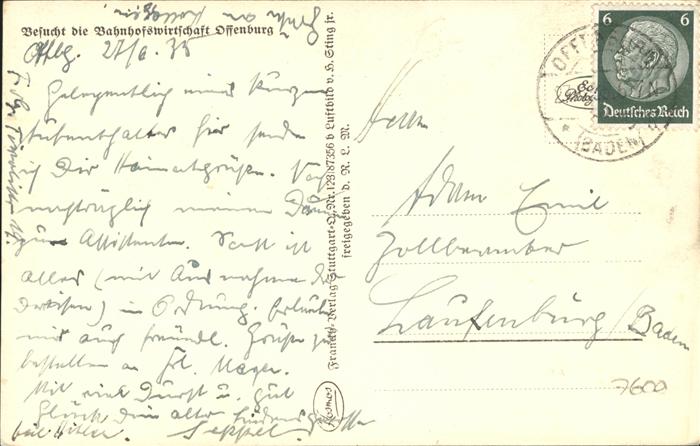 Besucht die Bahnhofswirtschaft Offenburg
Offbg. 27/6. 35
Gelegentlich eines kurzen
Aufenthaltes hier sende
ich Dir Heimatgrüße. Noch
nachträglich meinen
zum Assistenten. Sonst ist
alles (mit Ausnahme der
) in Ordnung.
mir auch freundl. Grüße zu
bestellen an Frl. Mayer.
Mit viel Durst u. gut
Glück Dein alter
Heil Hitler. Seppel.
Franckh-Verlag Stuttgart-O. Nr. 128/87356 b Luftbild v. H. Sting jr.
freigegeben d. R. L. M.
Kosmos
6 6
Deutsches Reich
(BADEN)
Herrn
Adam Emil
Zollbeamter
Laufenburg/Baden
7600